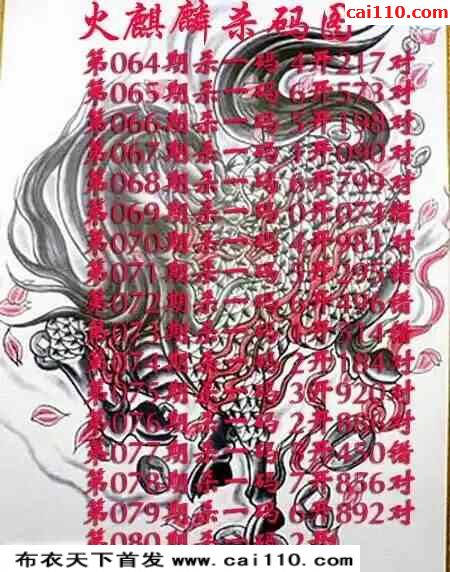 cai110.com
火麒麟杀码图
第064期杀一码 4开217对
第065期杀一码 6开573对
第066期杀一码 5开198对
第067期杀一码 开090对
第068期杀一码 6开799对
第069期杀一码 0开074错
第070期杀一码 4开981对
第071期杀一码 开 错
第072期杀一码 6开496错
第073期杀一码 开
第074期杀一码 2开184对
第075期杀一码 3开920对
第076期杀一码 2开 对
第077期杀一码 开450错
第078期杀一码 7开856对
第079期杀一码 6开892对
第080期杀一码 2开
布衣天下首发 www.cai110.com